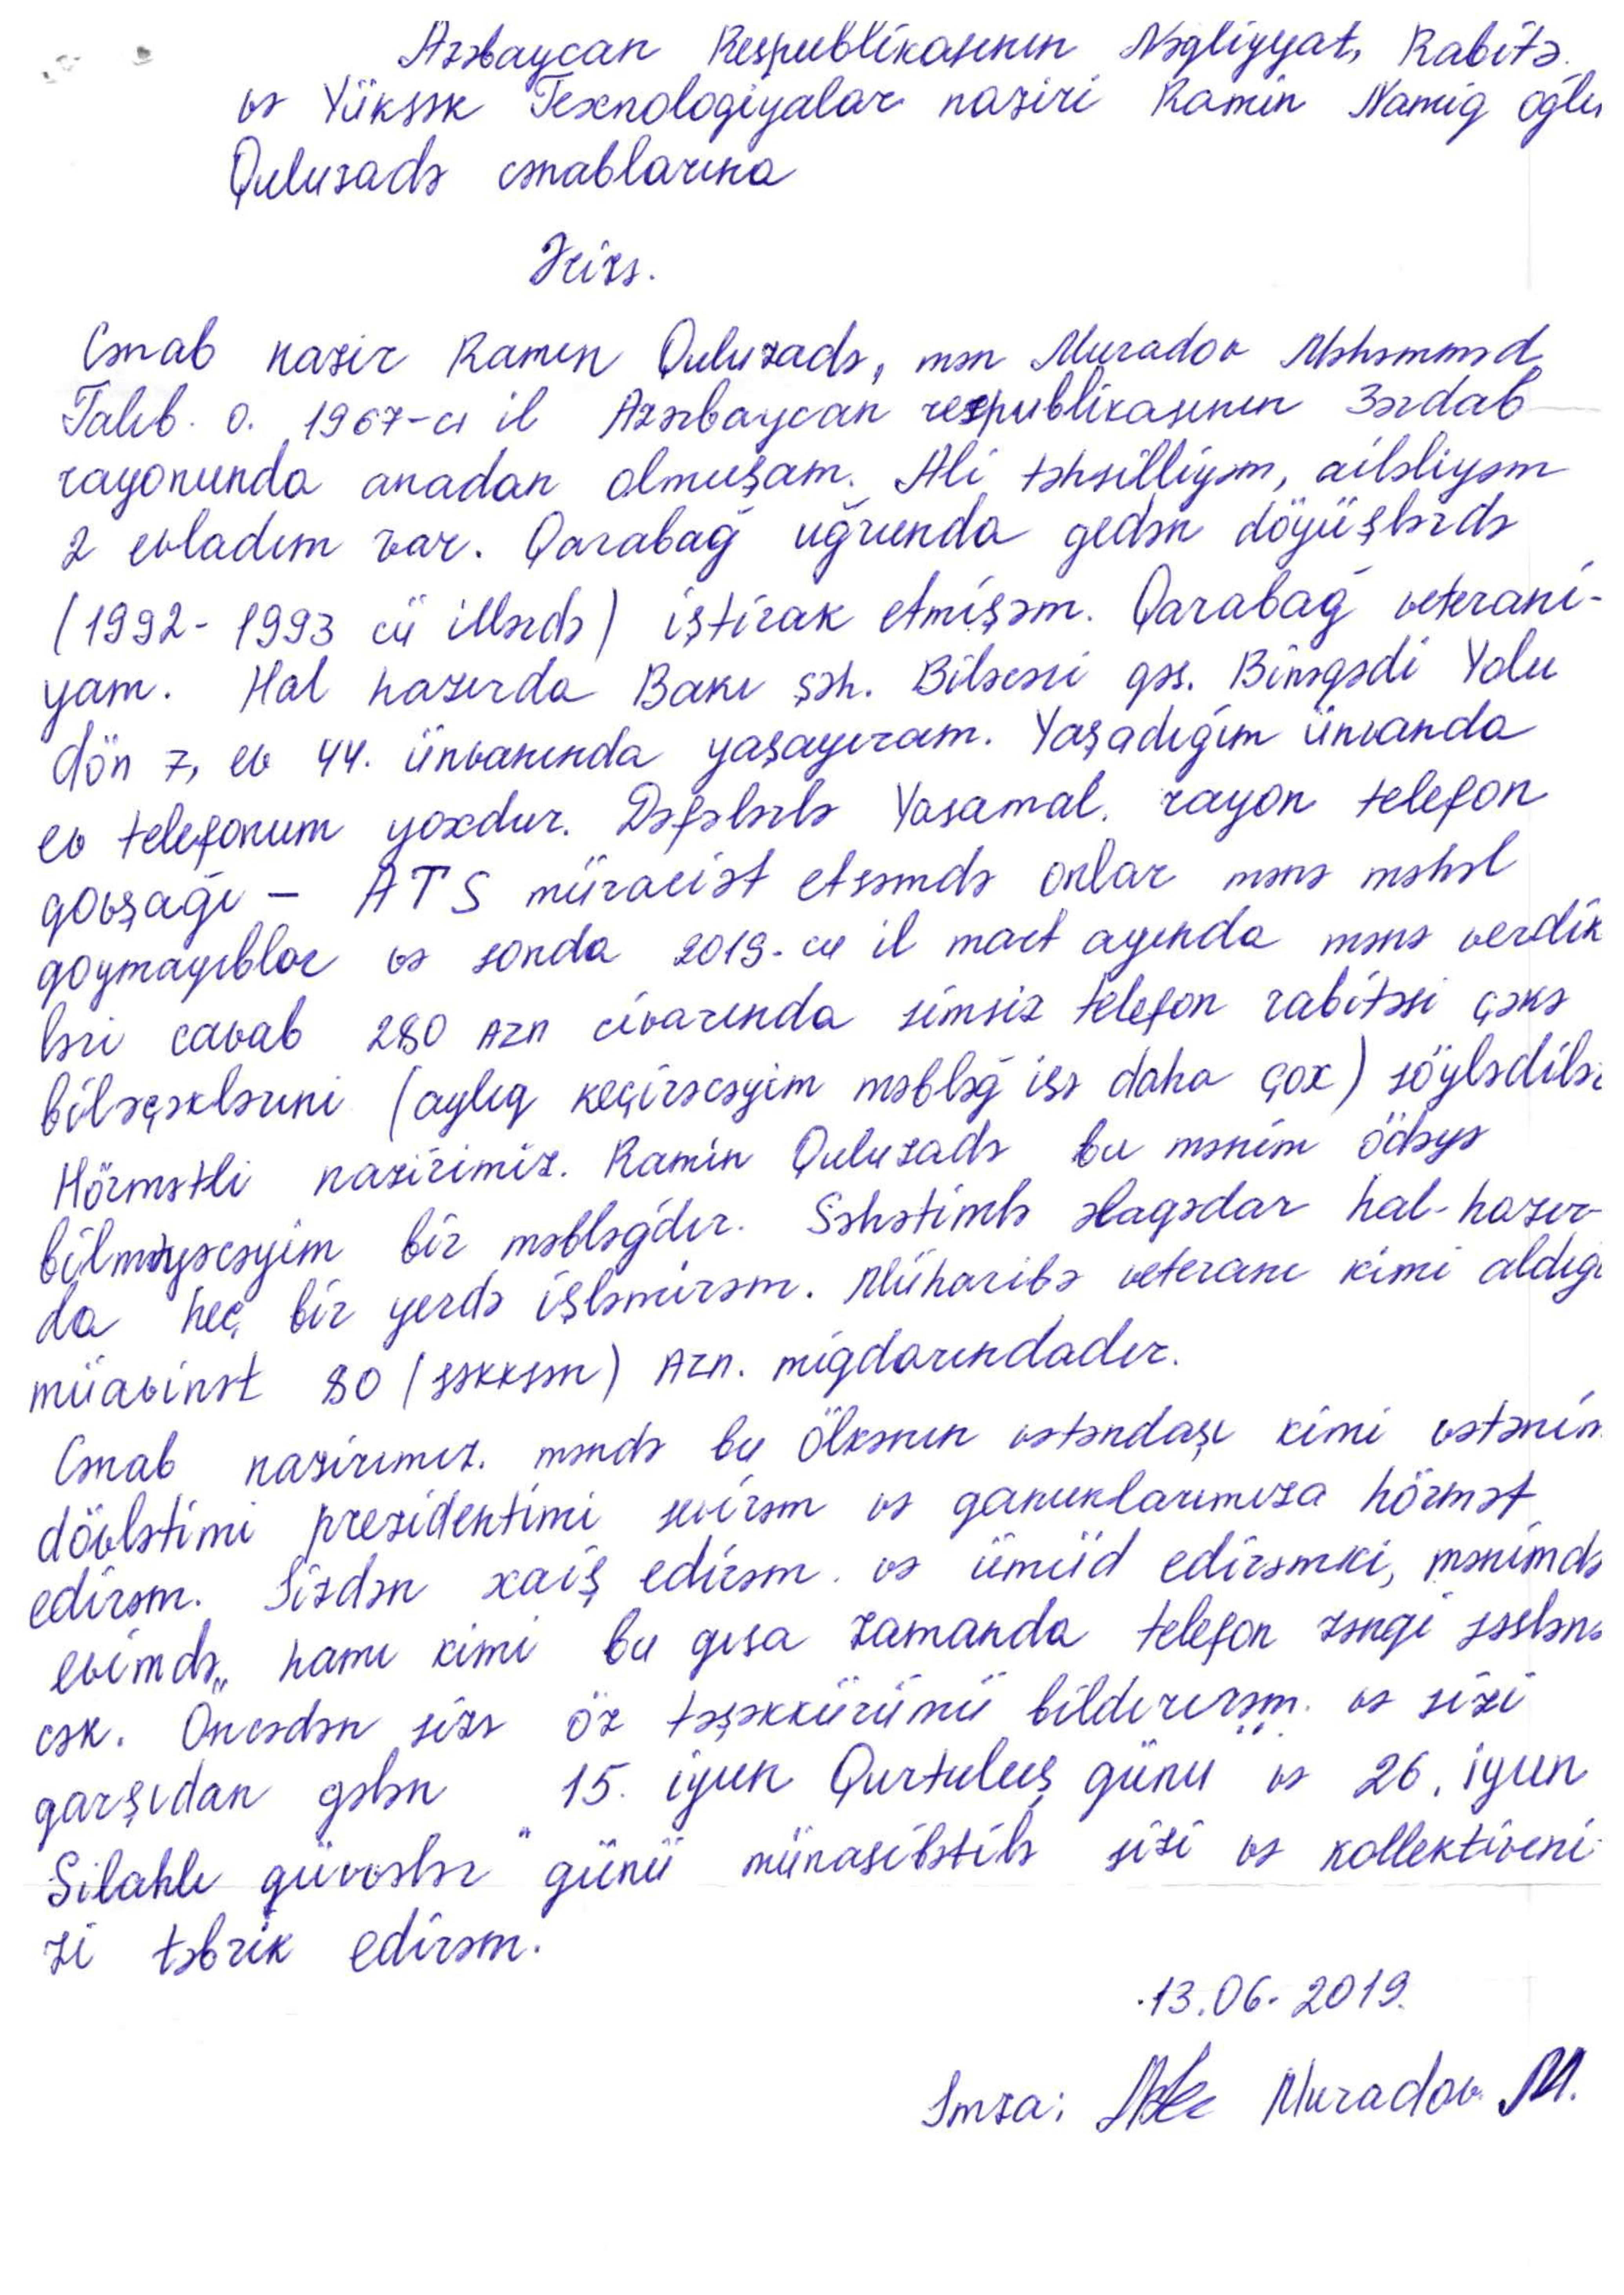 Azərbaycan Respublikasının Nəqliyyat, Rabitə
və Yüksək Texnologiyalar naziri Ramin Namig oğlu
Quluzadə cənablarına
Ərizə.
Cənab nazir Ramin Quluzadə, mən Muradov Məhəmməd
Talıb. o. 1967-ci il Azərbaycan respublikasının Zərdab
rayonunda anadan olmuşam. Ali təhsilliyəm, ailəliyəm
2 evladım var. Qarabağ uğrunda gedən döyüşlərdə
(1992-1993 cü illərdə) iştirak etmişəm. Qarabağ veterani-
yam. Hal hazırda Bakı şəh. Biləcəri qəs. Binəqədi Yolu
dön 7, ev 44. ünvanında yaşayıram. Yaşadığım ünvanda
ev telefonum yoxdur. Dəfələrlə Yasamal. rayon telefon
qovşağı - ATS müraciət etsəmdə onlar mənə məhəl
qoymayıblar və sonda 2019-cu il mart ayında mənə verdik
ləri cavab 280 AZN civarında simsiz telefon rabitəsi çəkə
biləçəklərini (aylıq keçirəcəyim məbləğ isə daha çox) söylədilər
Hörmətli nazirimiz. Ramin Quluzadə bu mənim ödəyə
bilməyəcəyim bir məbləğdir. Səhətimlə əlaqədar hal-hazır-
da heç bir yerdə işləmirəm. Müharibə veteranı kimi aldığı
müavinət 80 (səkksən) AZN. miqdarındadır.
Cənab nazirımız. məndə bu ölkənin vətəndaşı kimi vətənim
dövlətimi prezidentimi sevirəm və qanunlarımıza hörmət
edirəm. Sizdən xaiş edirəm. və ümüd edirəmki, mənimdə
evimdə,, hamı kimi bu qısa zamanda telefon zəngi səslənə
cək. Öncədən sizə öz təşəkkürümü bildirirəm. və sizi
qarşıdan gələn 15. iyun Qurtuluş günü" və 26. iyun
Silahlı qüvvələr" günü münasibətilə sizi və kollektiveni-
zi təbrik edirəm.
13.06.2019.
İmza: Muradov. M.